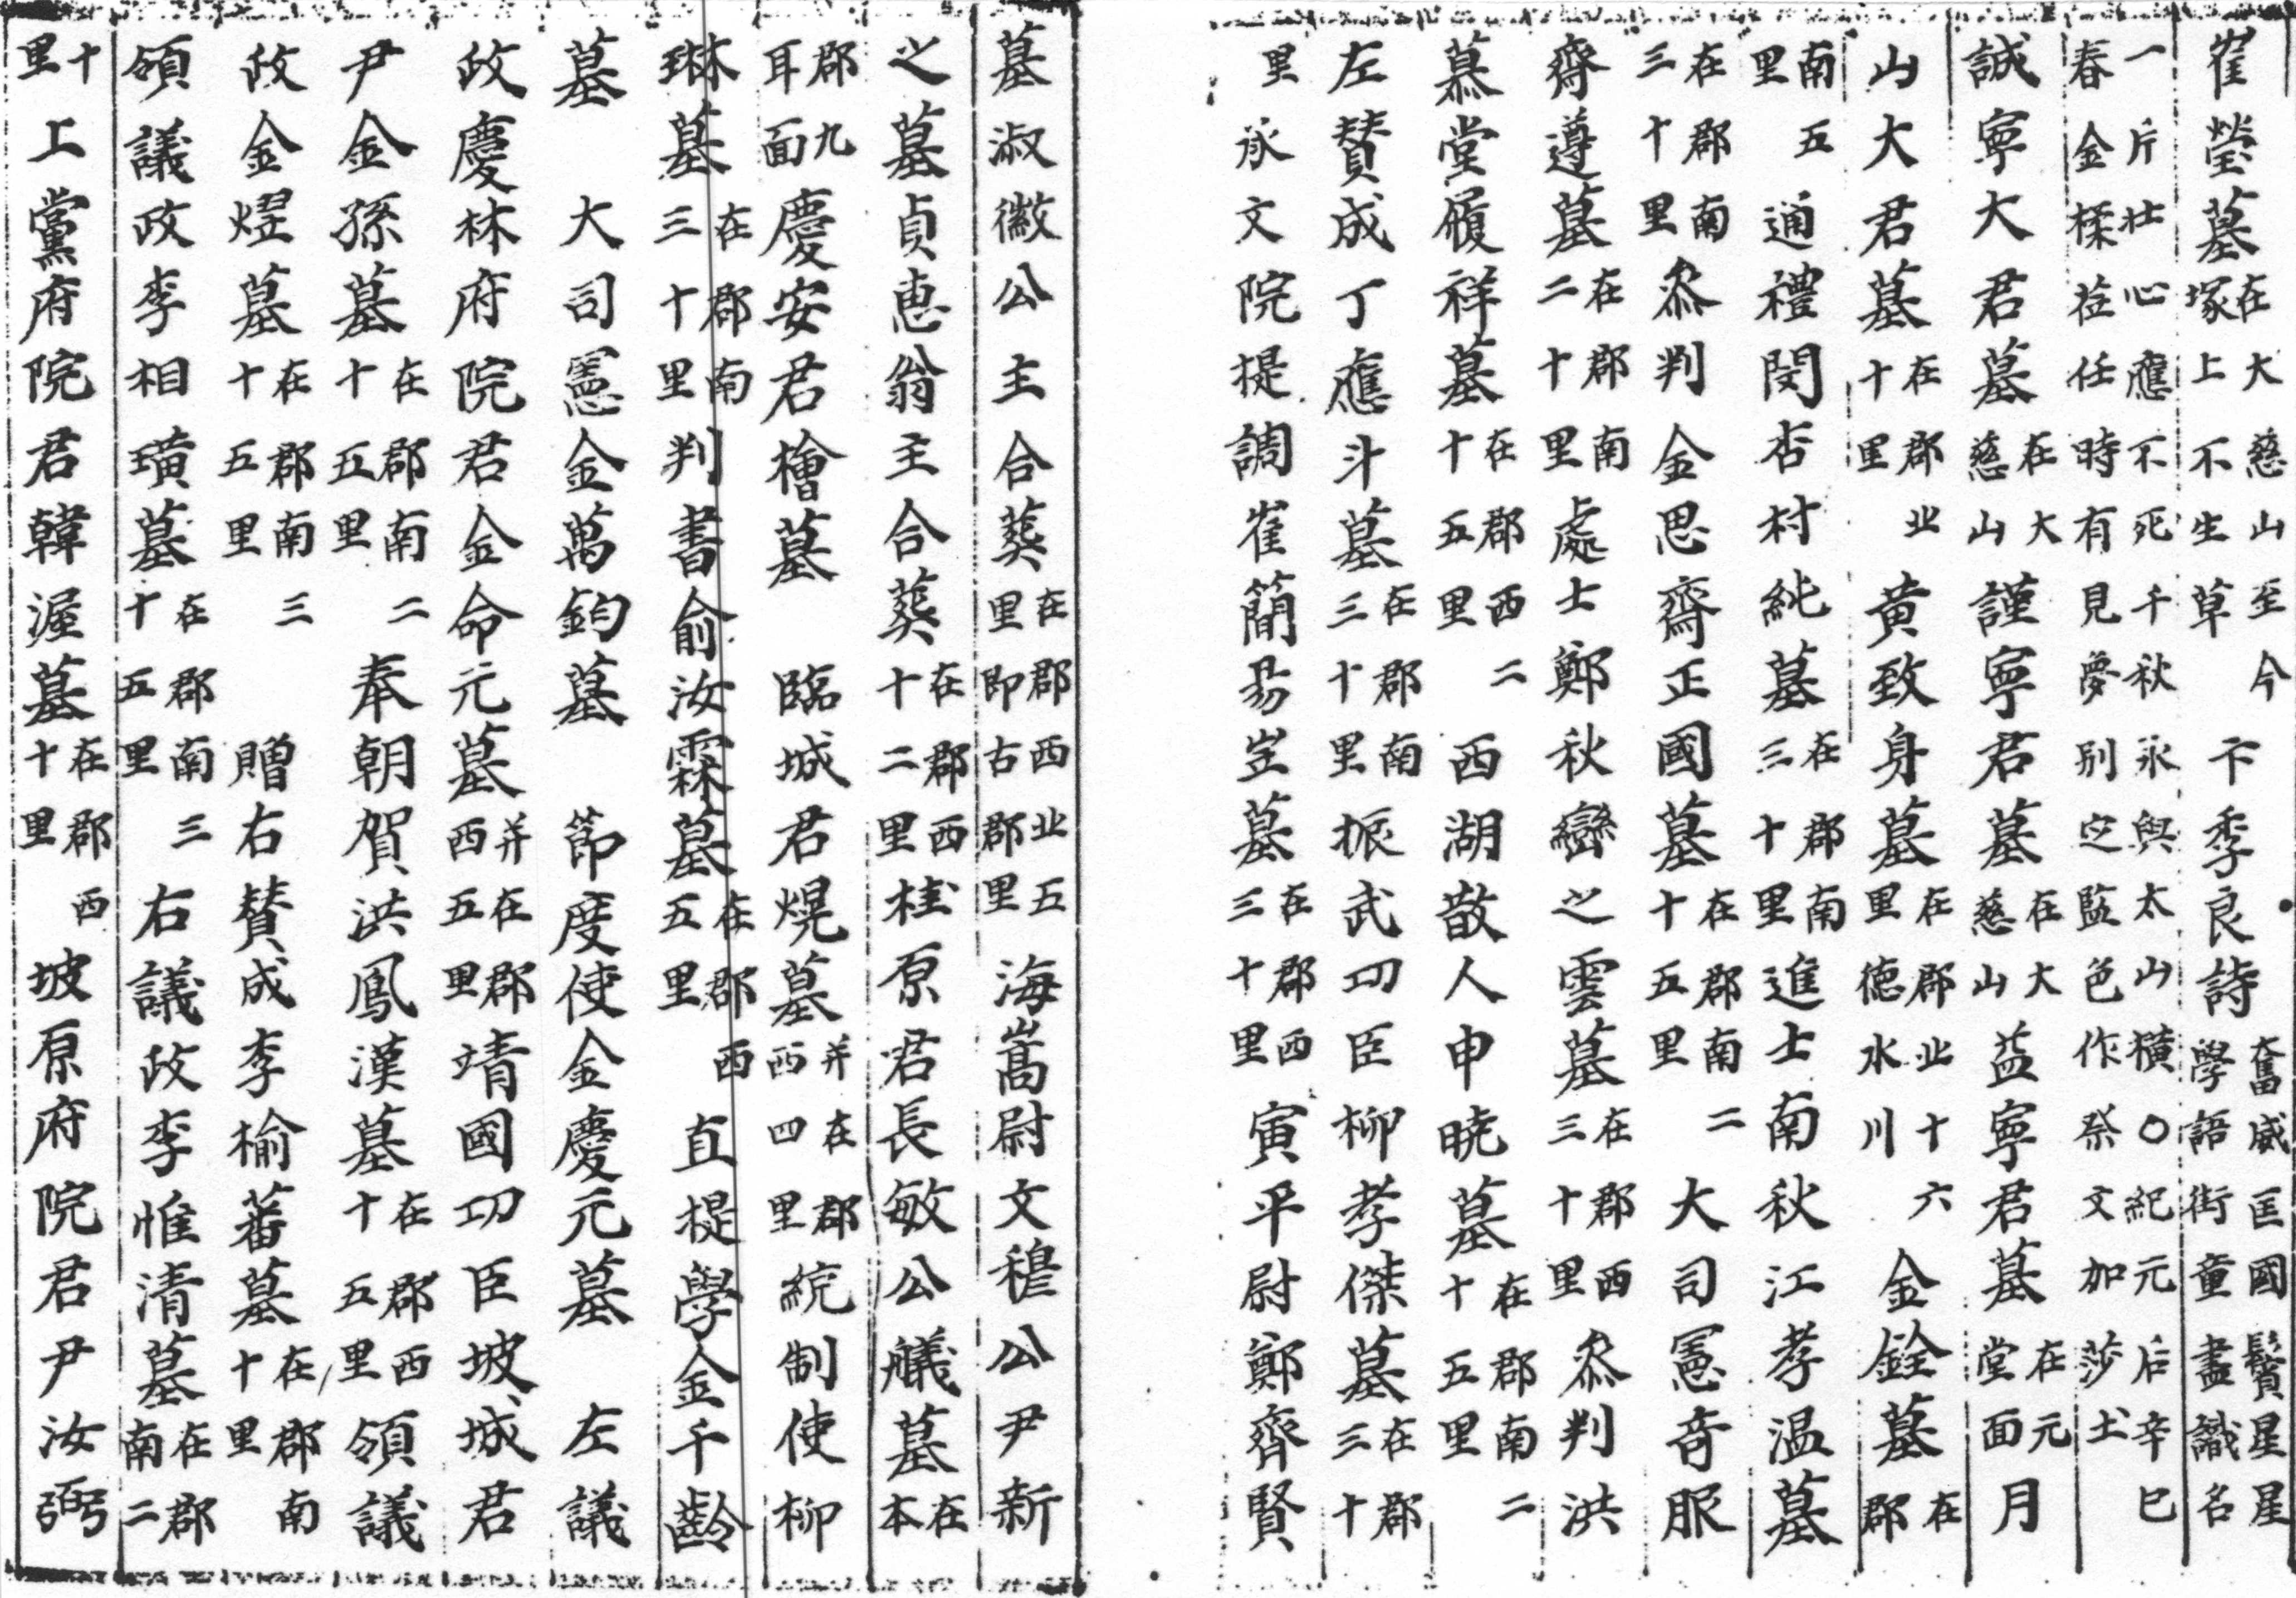 崔瑩墓在大慈山至今塚上不生草卞季良詩奮威匡國鬢星星學語街童盡識名
一片壯心應不死千秋永與太山橫○紀元后辛巳春金楺莅任時有見夢別之監色作祭文加莎土
誠寧大君墓在大慈山謹寧君墓在大慈山益寧君墓在元堂面月
山大君墓在郡北十里黃致身墓在郡北十六里德水川金銓墓在郡
南五里通禮閔杏村純墓在郡南三十里進士南秋江孝温墓
在郡南三十里叅判金思齋正國墓在郡南二十五里大司憲竒服
齋遵墓在郡南二十里處士鄭秋巒之雲墓在郡西三十里叅判洪
慕堂履祥墓在郡西二十五里西湖散人申曉墓在郡南二十五里
左賛成丁應斗墓在郡南三十里振武功臣柳孝傑墓在郡三十
里承文院提調崔簡易岦墓在郡西三十里寅平尉鄭齊賢
墓淑徽公主合葬在郡西北五里即古郡里海嵩尉文穆公尹新
之墓貞惠翁主合葬在郡西十二里桂原君長敏公艤墓在本
郡九耳面慶安君檜墓臨城君熀墓并在郡西四里統制使柳
琳墓在郡南三十里判書俞汝霖墓在郡西五里直提學金千齡
墓大司憲金萬鈞墓節度使金慶元墓左議
政慶林府院君金命元墓并在郡西五里靖國功臣坡城君
尹金孫墓在郡南二十五里奉朝賀洪鳳漢墓在郡西十五里領議
政金熤墓在郡南三十五里贈右賛成李楡蕃墓在郡南十里
領議政李相璜墓在郡南三十五里右議政李惟清墓在郡南二
十里上黨府院君韓渥墓在郡西十里坡原府院君尹汝弼